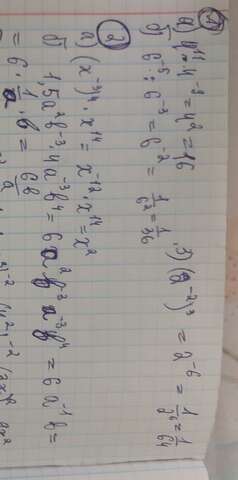 ①
а) 4¹¹ · 4⁻⁹ = 4² = 16
б) 6⁻⁵ : 6⁻³ = 6⁻² = 1/6² = 1/36
3) (2⁻²)³ = 2⁻⁶ = 1/2⁶ = 1/64
②
а) (x⁻³)⁴ · x¹⁴ = x⁻¹² · x¹⁴ = x²
б) 1,5a²b⁻³ · 4a⁻³b⁴ = 6a²b⁻³a⁻³b⁴ = 6a⁻¹b =
= 6 · 1/a · b = 6b/a